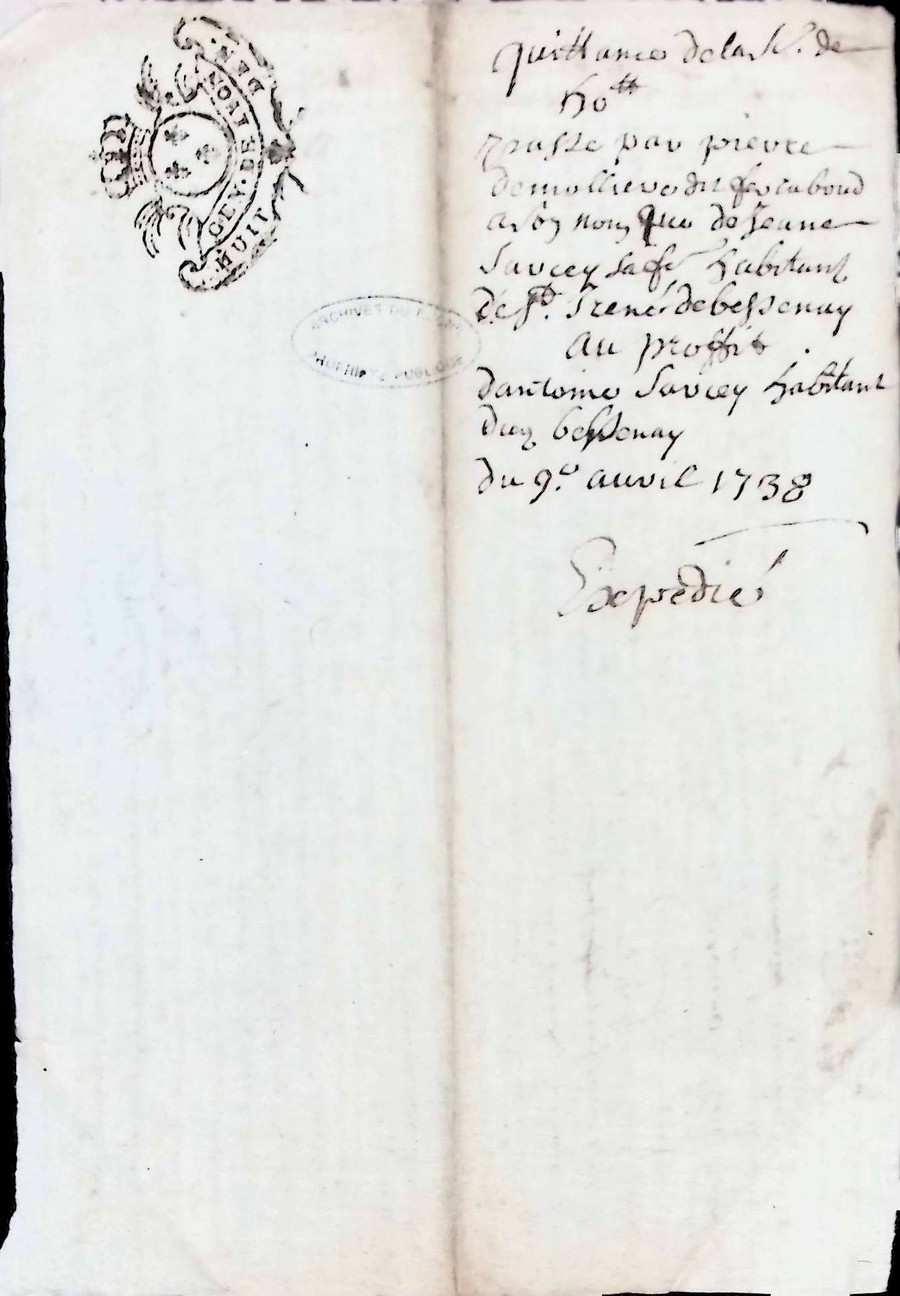 GEN. DE LYON
HUIT DEN.
ARCHIVES DU
PROPRIÉTÉ PUBLIQUE
quittance de la S.e de
50tt
passée par pierre
demolliere dit ferraboud
a son nom que de Jeanne
Savcey sa fe habitant
de St. Irené de bessenay
au proffit
dantoine Savcey habitant
duq bessenay
du 9.e auvril 1738
Expedié